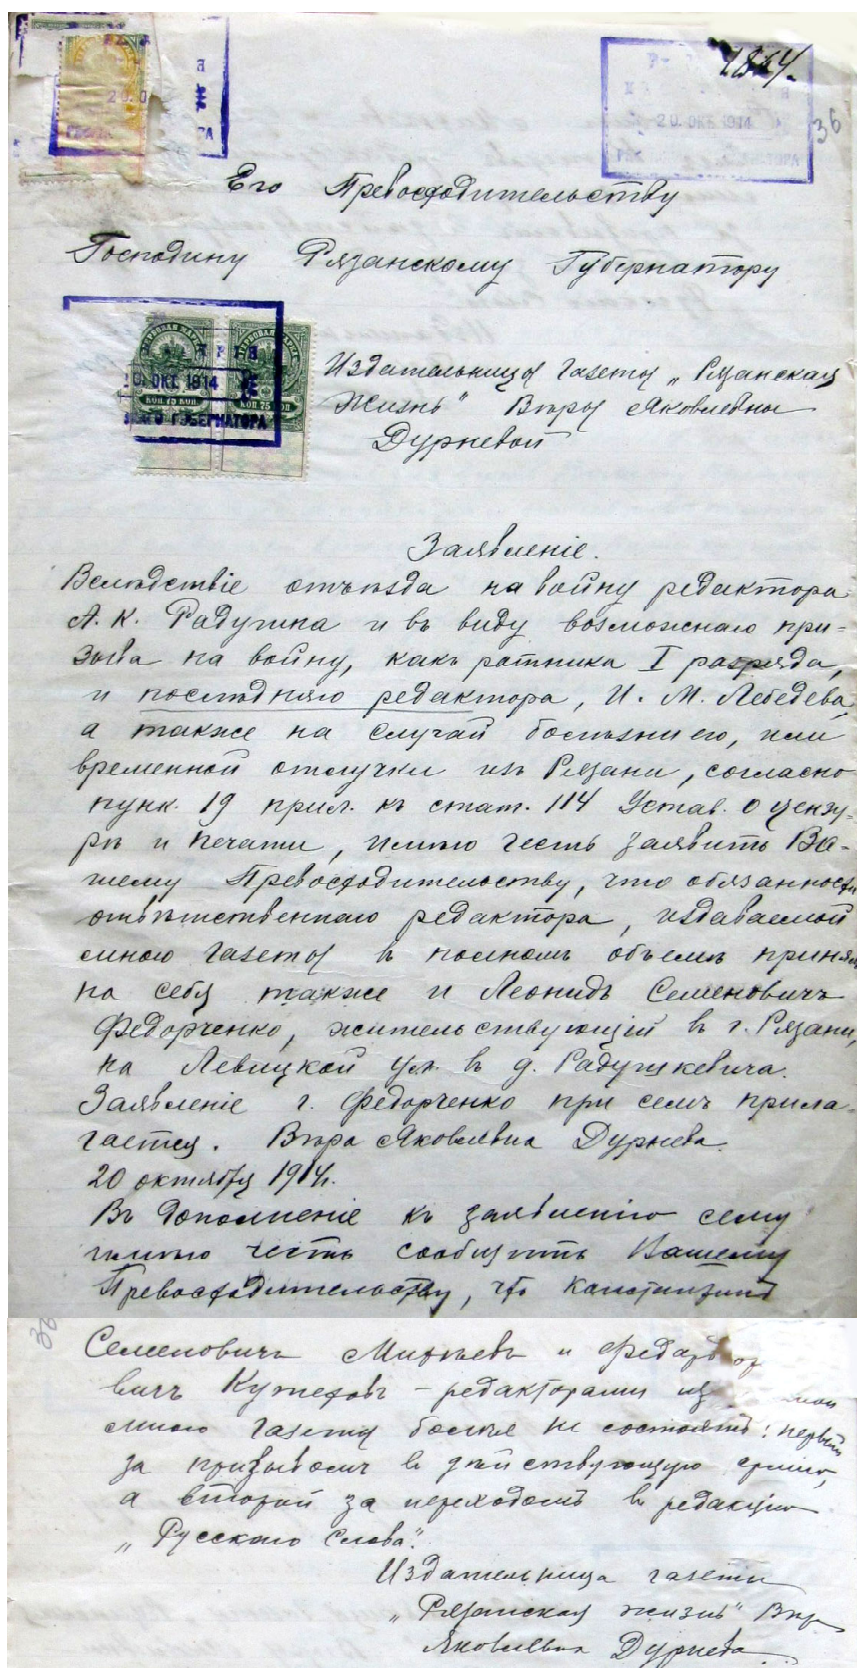 1864.
36
20. ОКТ. 1914
Его Превосходительству
Господину Рязанскому Губернатору
20. ОКТ. 1914
КОП 75 КОП
КОП 75 КОП
ГУБЕРНАТОРА
Издательницы газеты „Рязанская
Жизнь" Вѣры Яковлевны
Дурневой
Заявленіе.
Вслѣдствіе отъѣзда на войну редактора
А. К. Радугина и въ виду возможнаго при-
зыва на войну, какъ ратника I разряда,
и послѣдняго редактора, И. М. Лебедева,
а также на случай болѣзни его, или
временной отлучки изъ Рязани, согласно
пунк. 19 прил. къ стат. 114 Устав. о цензу-
рѣ и печати, имѣю честь заявить Ва-
шему Превосходительству, что обязанности
отвѣтственнаго редактора, издаваемой
мною газеты въ полномъ объемѣ принялъ
на себя также и Леонидъ Семеновичъ
Федорченко, жительствующій въ г. Рязани,
на Левицкой ул. въ д. Радушкевича.
Заявленіе г. Федорченко при семъ прила-
гается. Вѣра Яковлевна Дурнева.
20 октября 1914г.
Въ дополненіе къ заявленію сему
имѣю честь сообщить Вашему
Превосходительству, что Константинъ
36
Семеновичъ и Федоръ
вичъ – редакторами
мною газеты болѣе не состоятъ: первый
за призывомъ въ дѣйствующую армію,
а второй за переходомъ въ редакцію
„Русскаго Слова".
Издательница газеты
„Рязанская жизнь" Вѣра
Яковлевна Дурнева.